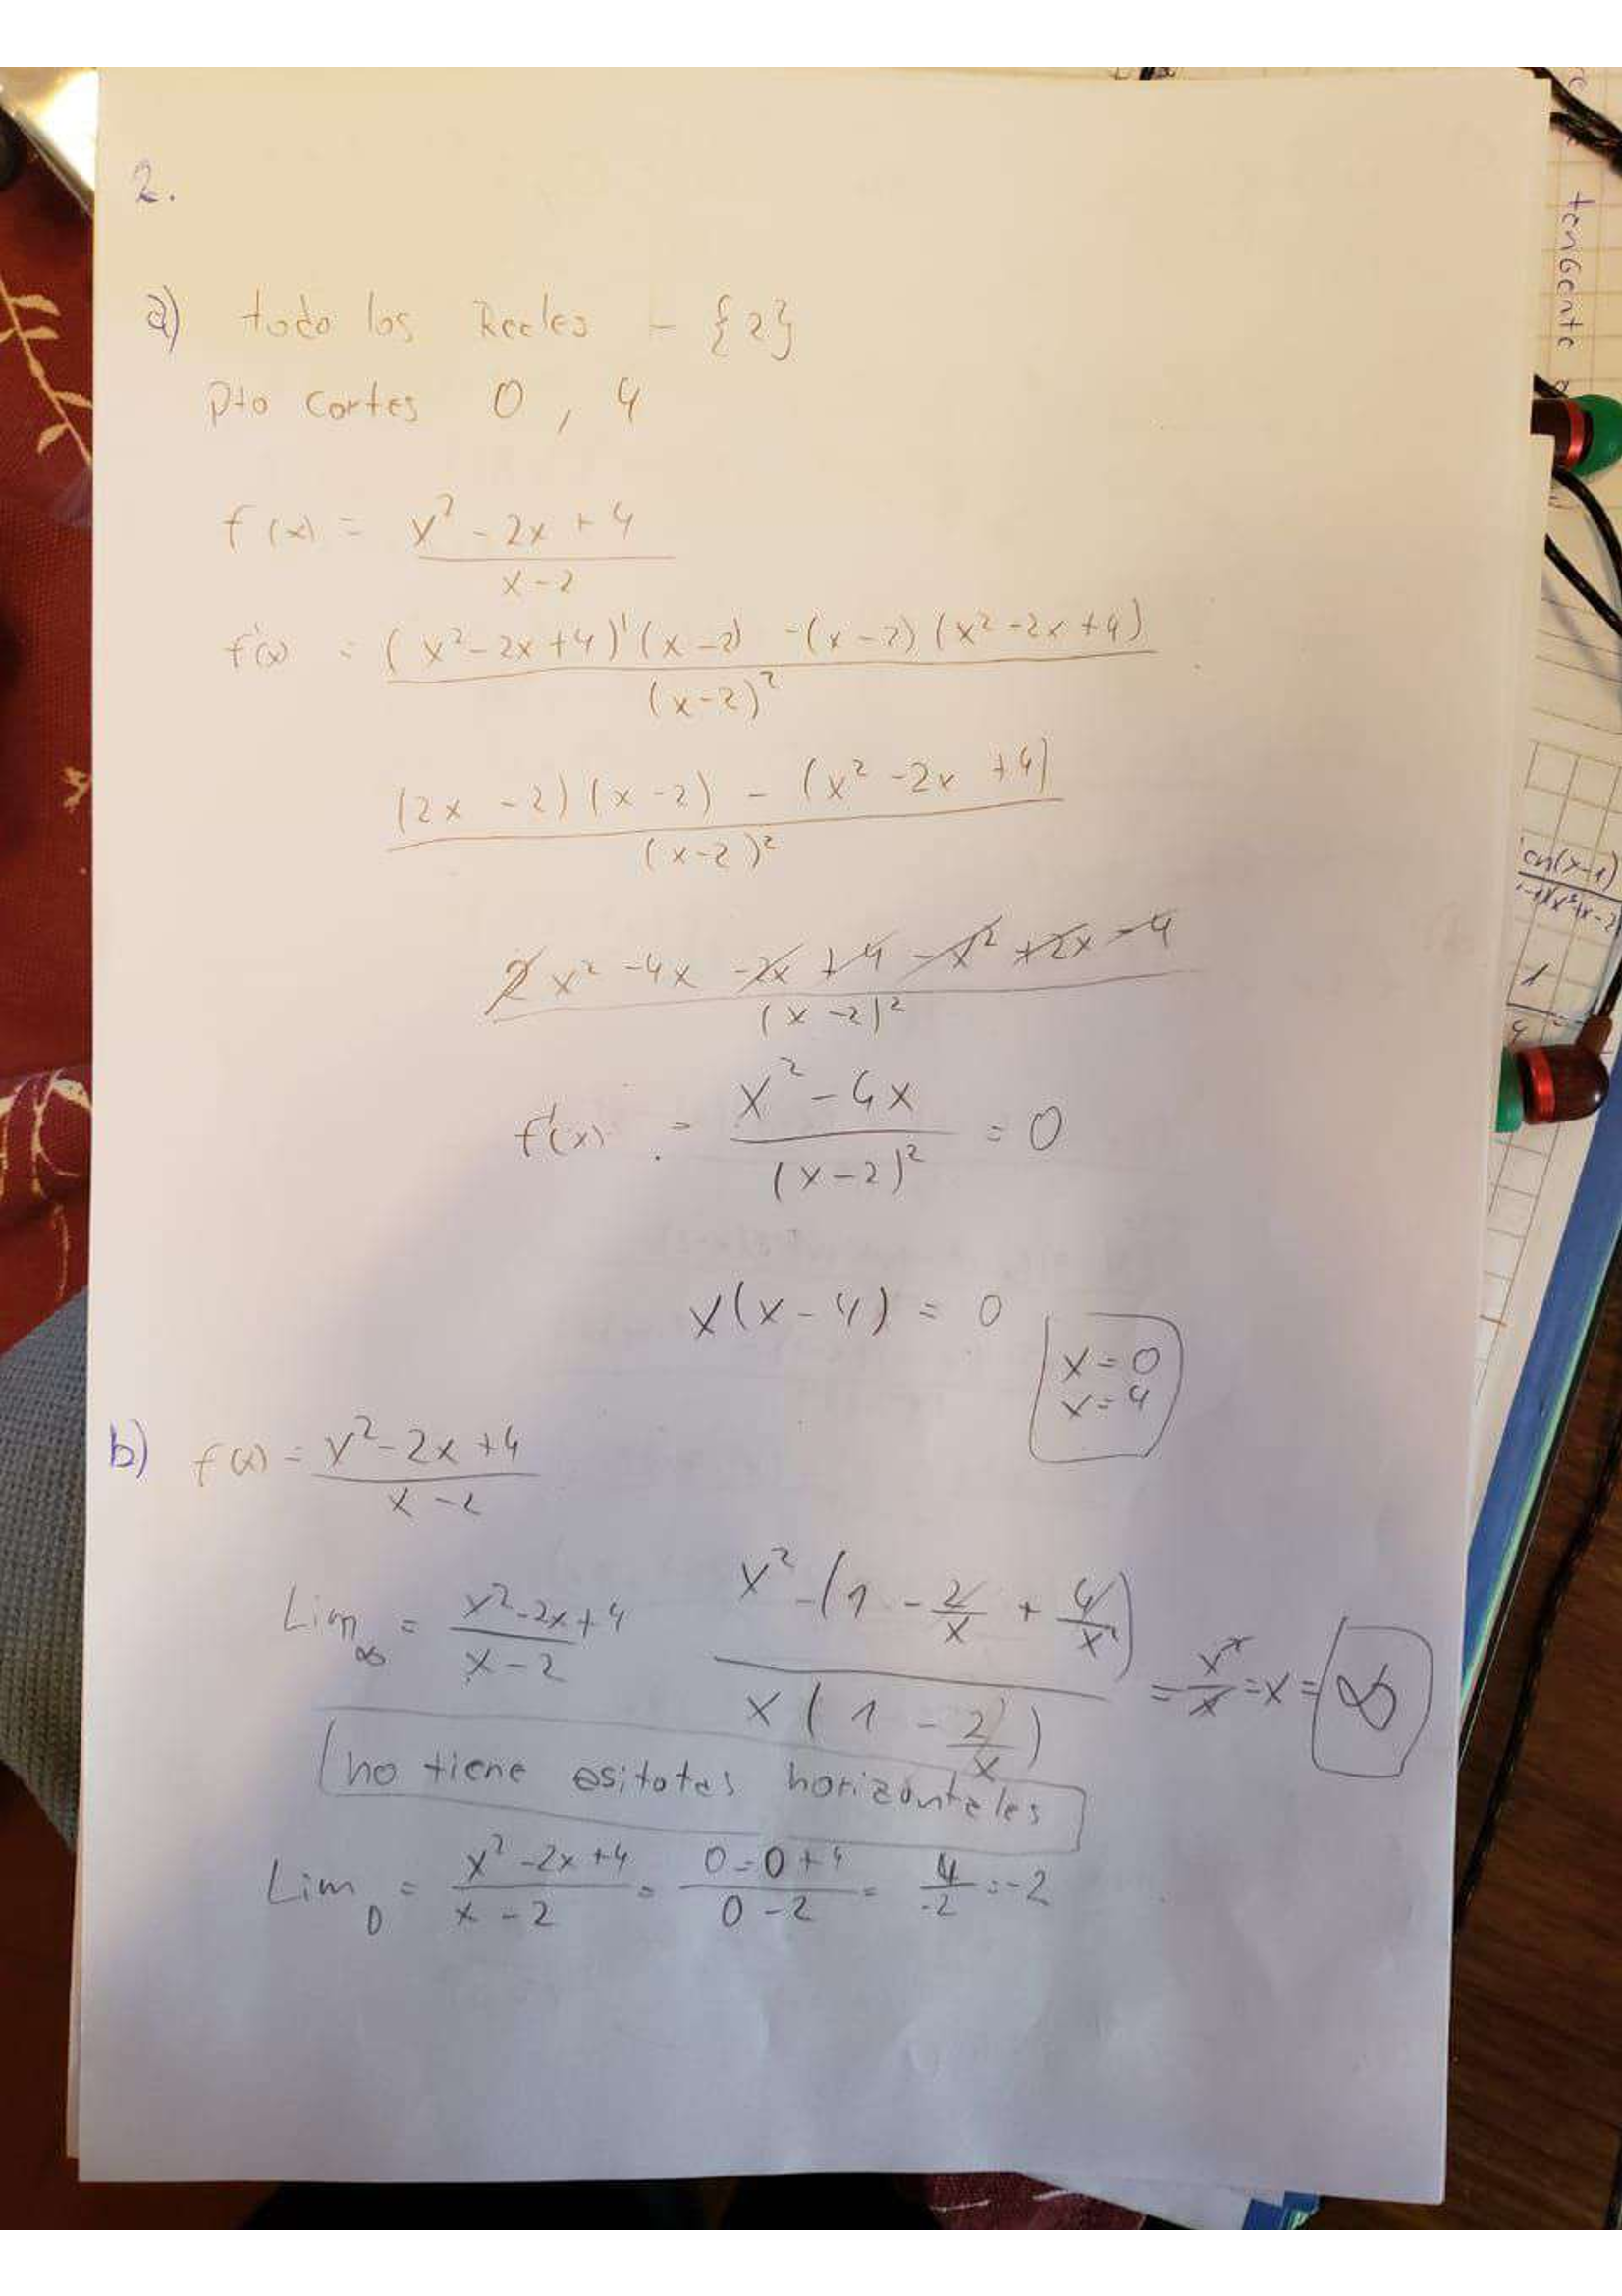 2.
a) todo los Reales - {2}
Pto cortes 0 , 4
f(x) = x² - 2x + 4
x - 2
f'(x) = (x² - 2x + 4)' (x - 2) - (x - 2) (x² - 2x + 4)
(x - 2)²
(2x - 2) (x - 2) - (x² - 2x + 4)
(x - 2)²
2x² - 4x - 2x + 4 - x² + 2x - 4
(x - 2)²
f'(x) = x² - 4x = 0
(x - 2)²
x(x - 4) = 0
x = 0
x = 4
b) f(x) = x² - 2x + 4
x - 2
Lim ∞ = x² - 2x + 4
x - 2
x² (1 - 2/x + 4/x²)
x (1 - 2/x)
= x²/x = x = ∞
no tiene asitotas horizontales
Lim 0 = x² - 2x + 4 = 0 - 0 + 4 = 4 = -2
x - 2 0 - 2 -2
tangente
1
4